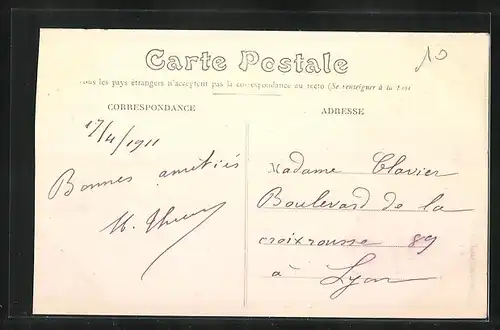 10
Carte Postale
Tous les pays étrangers n'acceptent pas la correspondance au recto (Se renseigner à la
CORRESPONDANCE
ADRESSE
17/4/1911
Bonnes amitiés
Madame Clavier
Boulevard de la
croixrousse 89
à Lyon